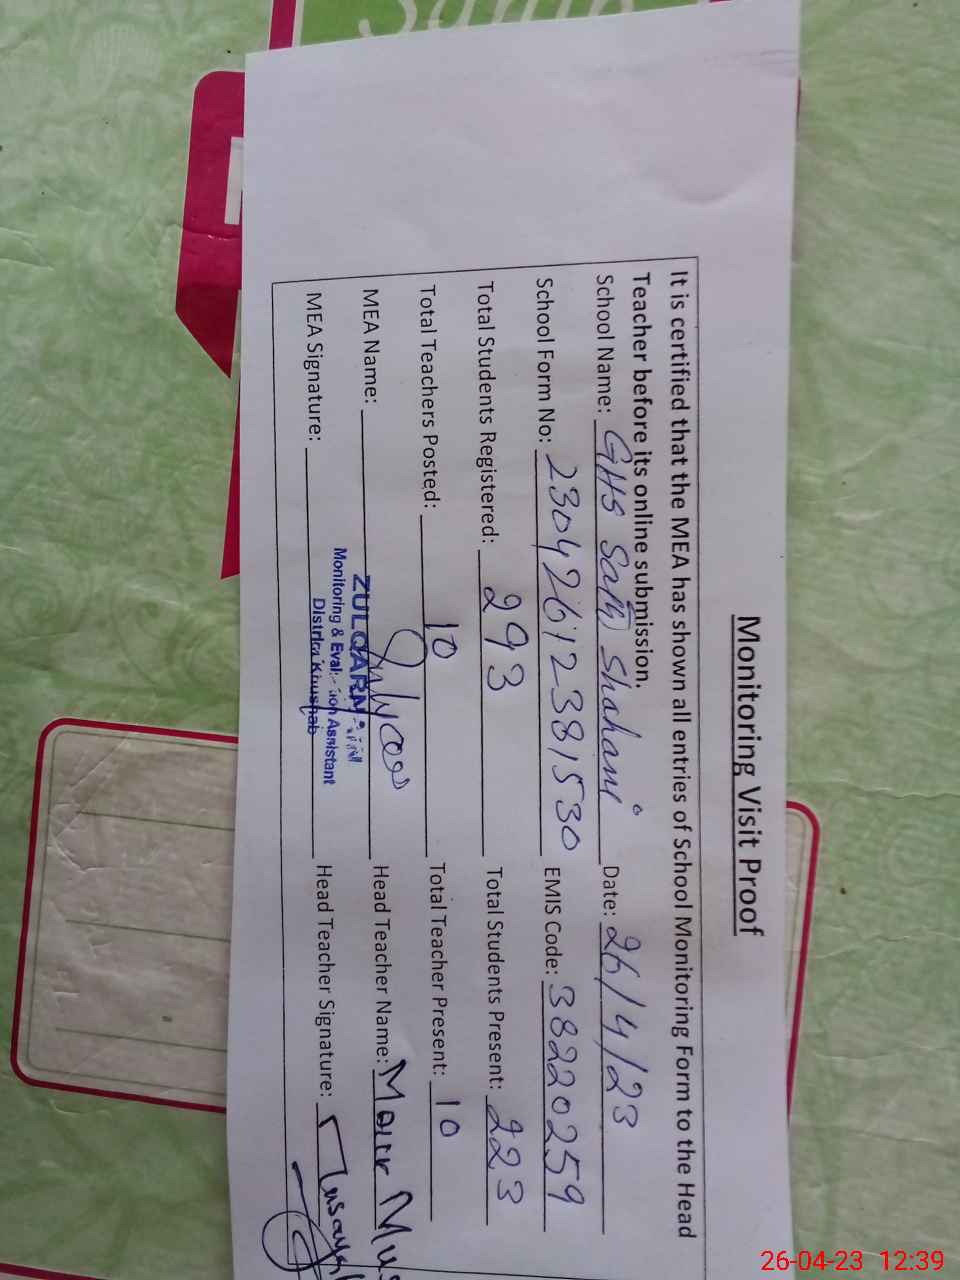 Monitoring Visit Proof
It is certified that the MEA has shown all entries of School Monitoring Form to the Head
Teacher before its online submission.
School Name: GHS Sath Shahani Date: 26/4/23
School Form No: 23042612381530 EMIS Code: 38220259
Total Students Registered: 293 Total Students Present: 223
Total Teachers Posted: 10 Total Teacher Present: 10
MEA Name: Head Teacher Name:
ZULQARN
Monitoring & Evaluation Assistant
District Khushab
MEA Signature: Head Teacher Signature:
26-04-23 12:39